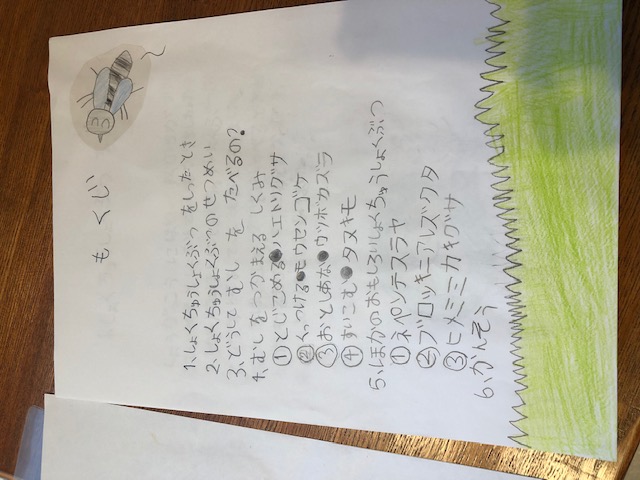 もくじ
1、しょくちゅうしょくぶつをしったとき
2、しょくちゅうしょくぶつのせつめい
3、どうして むしを たべるの?
4、むしをつかまえる しくみ
①とじこめる●ハエトリグサ
②くっつける●モウセンゴケ
③おとしあな●ウツボカズラ
④すいこむ●タヌキモ
5、ほかのおもしろいしょくちゅうしょくぶつ
①ネペンテスラヤ
②ブロッキニアレズクタ
③ヒメミミカキグサ
6、かんそう